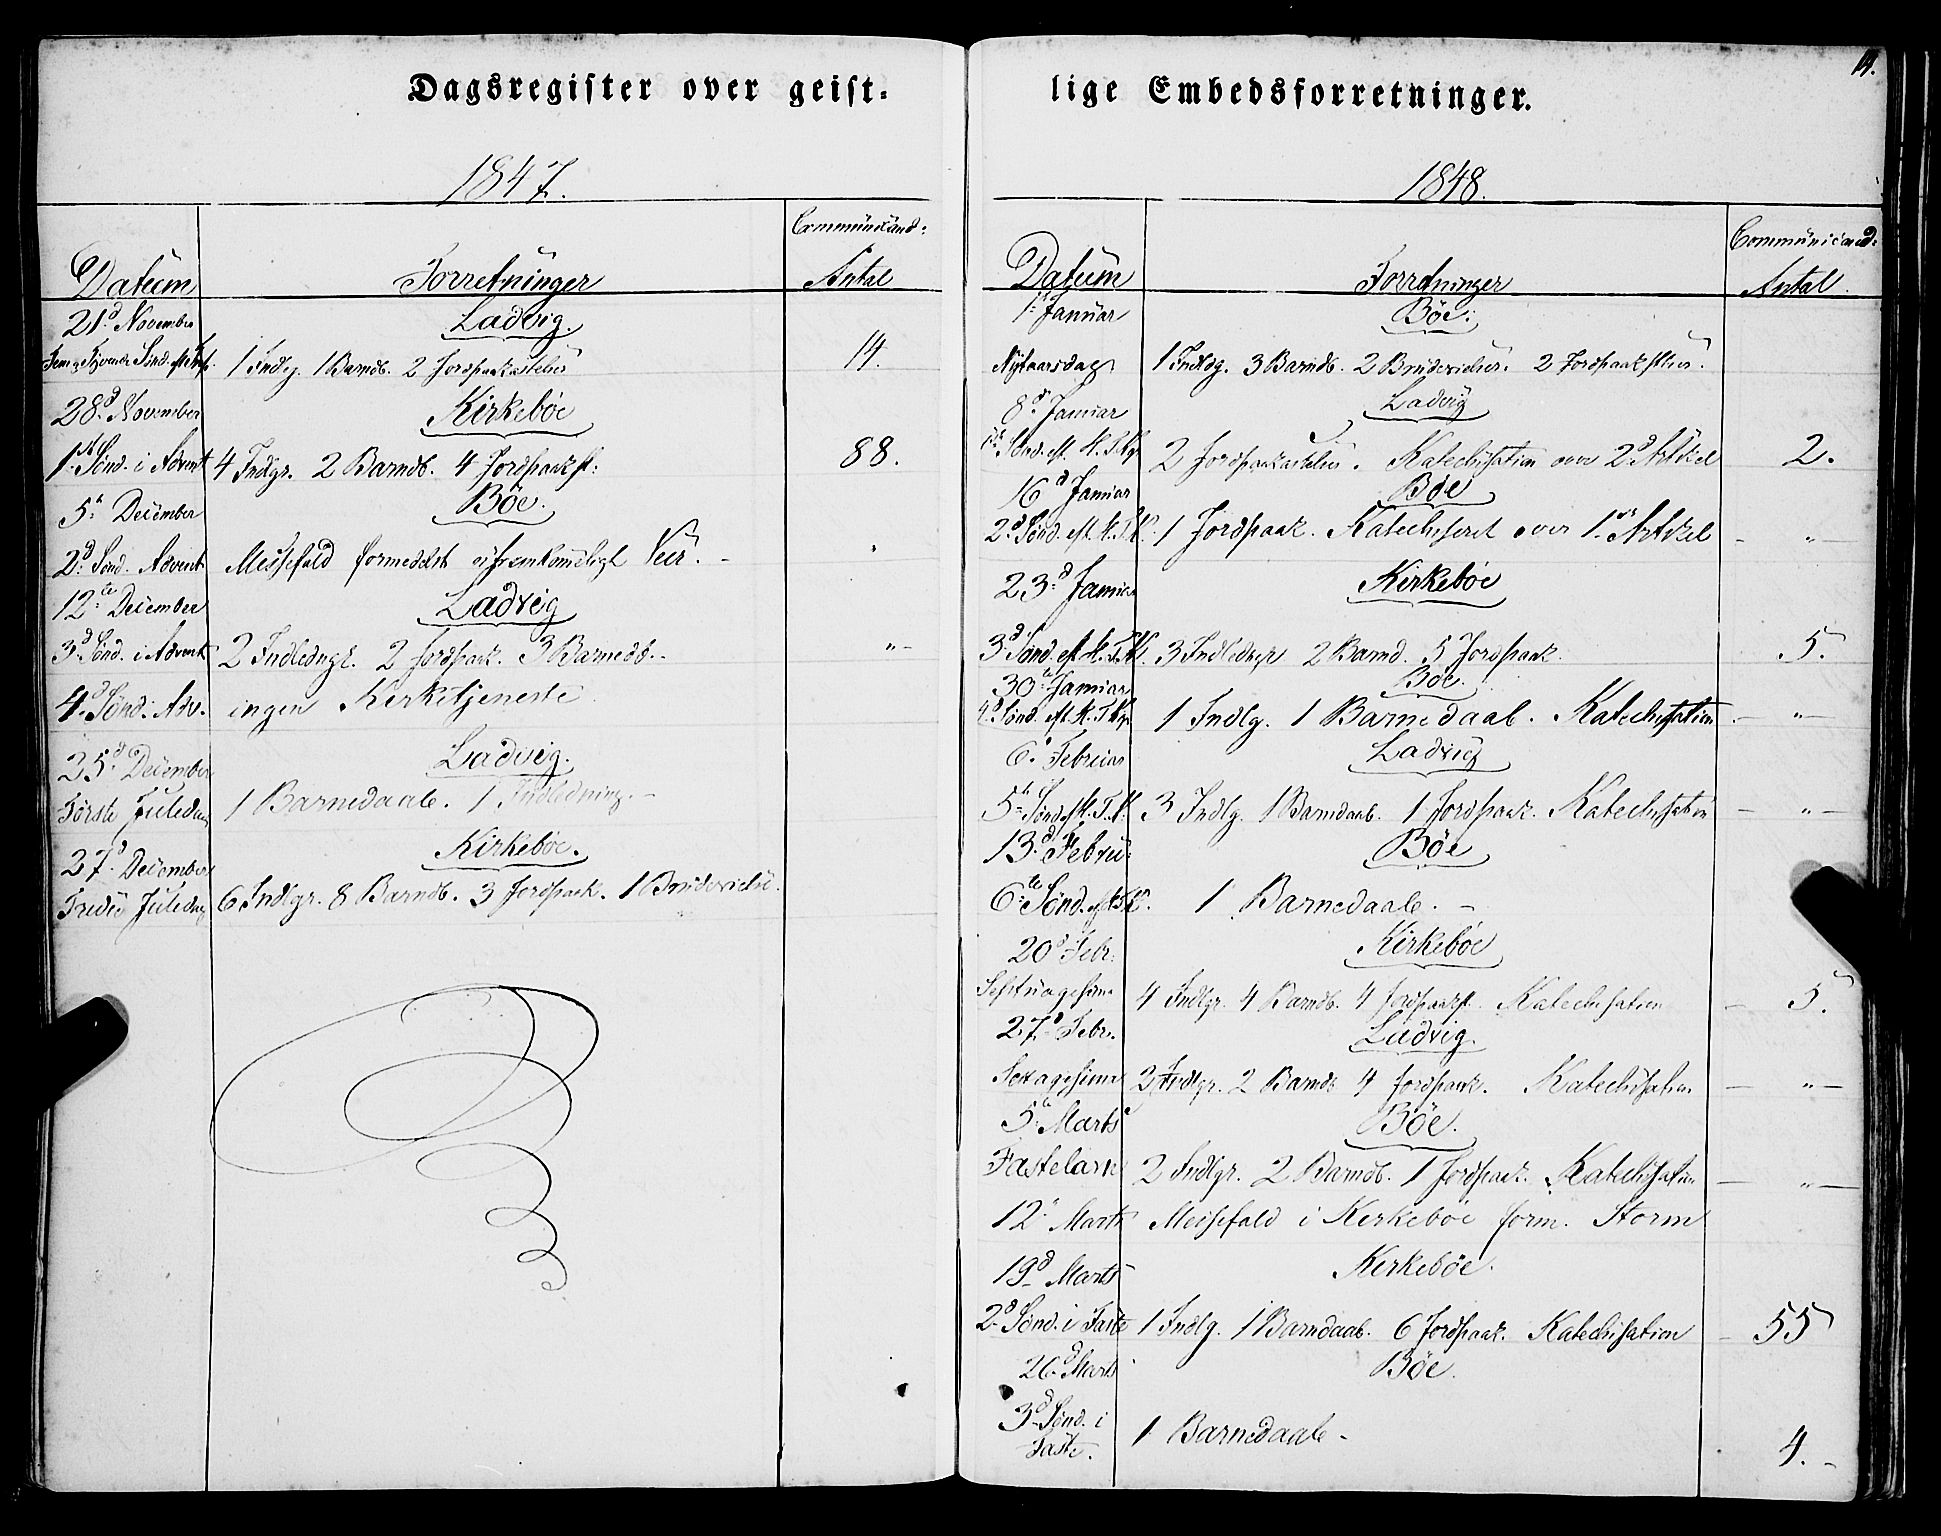 Dagsregister over geist-
1847.
Datum Forretninger Communicand: Antal
21d November Ladvig.
Sönd. 1 Indlg. 1 Barndb. 2 Jordpaakastelser 14.
28d November Kirkeböe
1st Sönd. i Advent 4 Indlgr. 2 Barndb. 4 Jordpaakst: 88.
5t December Böe.
2d Sönd. Advent Messefald formedelst Veir. - "
12te December Ladvig
3d Sönd. i Advent 2 Indledngr. 2 Jordpaak. 3 Barnedb. - " -
4d Sönd. Adv. ingen Kirketjeneste
25d December Ladvig.
Förste Juledag 1 Barnedaab. 1 Indledning. -
27d December Kirkeböe.
Tredie Juledag 6 Indlgr. 8 Barndb. 3 Jordpaak. 1 Brudevielse.
14.
lige Embedsforretninger.
1848.
Datum Forretninger Communicand: Antal
1st Januar Böe.
Nytaarsdag 1 Indldg. 3 Barndb. 2 Brudevielser. 2 Jordpaakstlser.
8d Januar Ladvig
1st Sönd. eft. H. T. Kgr. 2 Jordpaakastelser. Katechisation over 2d Artikel 2.
16d Januar Böe
2d Sönd. eft. H. T. K. 1 Jordpaak. Katechiseret over 1st Artikel - " -
23d Januar Kirkeböe
3d Sönd. eft. H. T. K. 3 Indledngr 2 Barnd. 5 Jordpaak. 5.
30te Januar Böe.
4d Sönd. eft. H. T. Kgr 1 Indlg. 1 Barnedaab. Katechisation - " -
6d Februar Ladvig
5te Sönd. eft H. T. K. 3 Indlg. 1 Barndaab. 1 Jordpaak. Katechisation - " -
13d Febru: Böe
6te Sönd. eft H. T. K. 1 Barnedaab. -
20d Febr: Kirkeböe
Septuagesima 4 Indlgr. 4 Barndb. 4 Jordpaakst. Katechisation - 5.
27d Febr. Ladvig.
Sexagesima 2 Indlgr. 2 Barndb 4 Jordpaak. Katechisation - " -
5te Marts Böe.
Fastelavn 2 Indlgr. 2 Barndb. 1 Jordpaak. Katechisation - " -
12te Marts Messefald i Kirkeböe form. Storm
19d Marts Kirkeböe.
2d Sönd. i Faste 1 Indlg. 1 Barndaab. 6 Jordpaak. Katechisation - 55
26d Marts Böe.
3d Sönd. i
Faste. 1 Barnedaab - 4. -